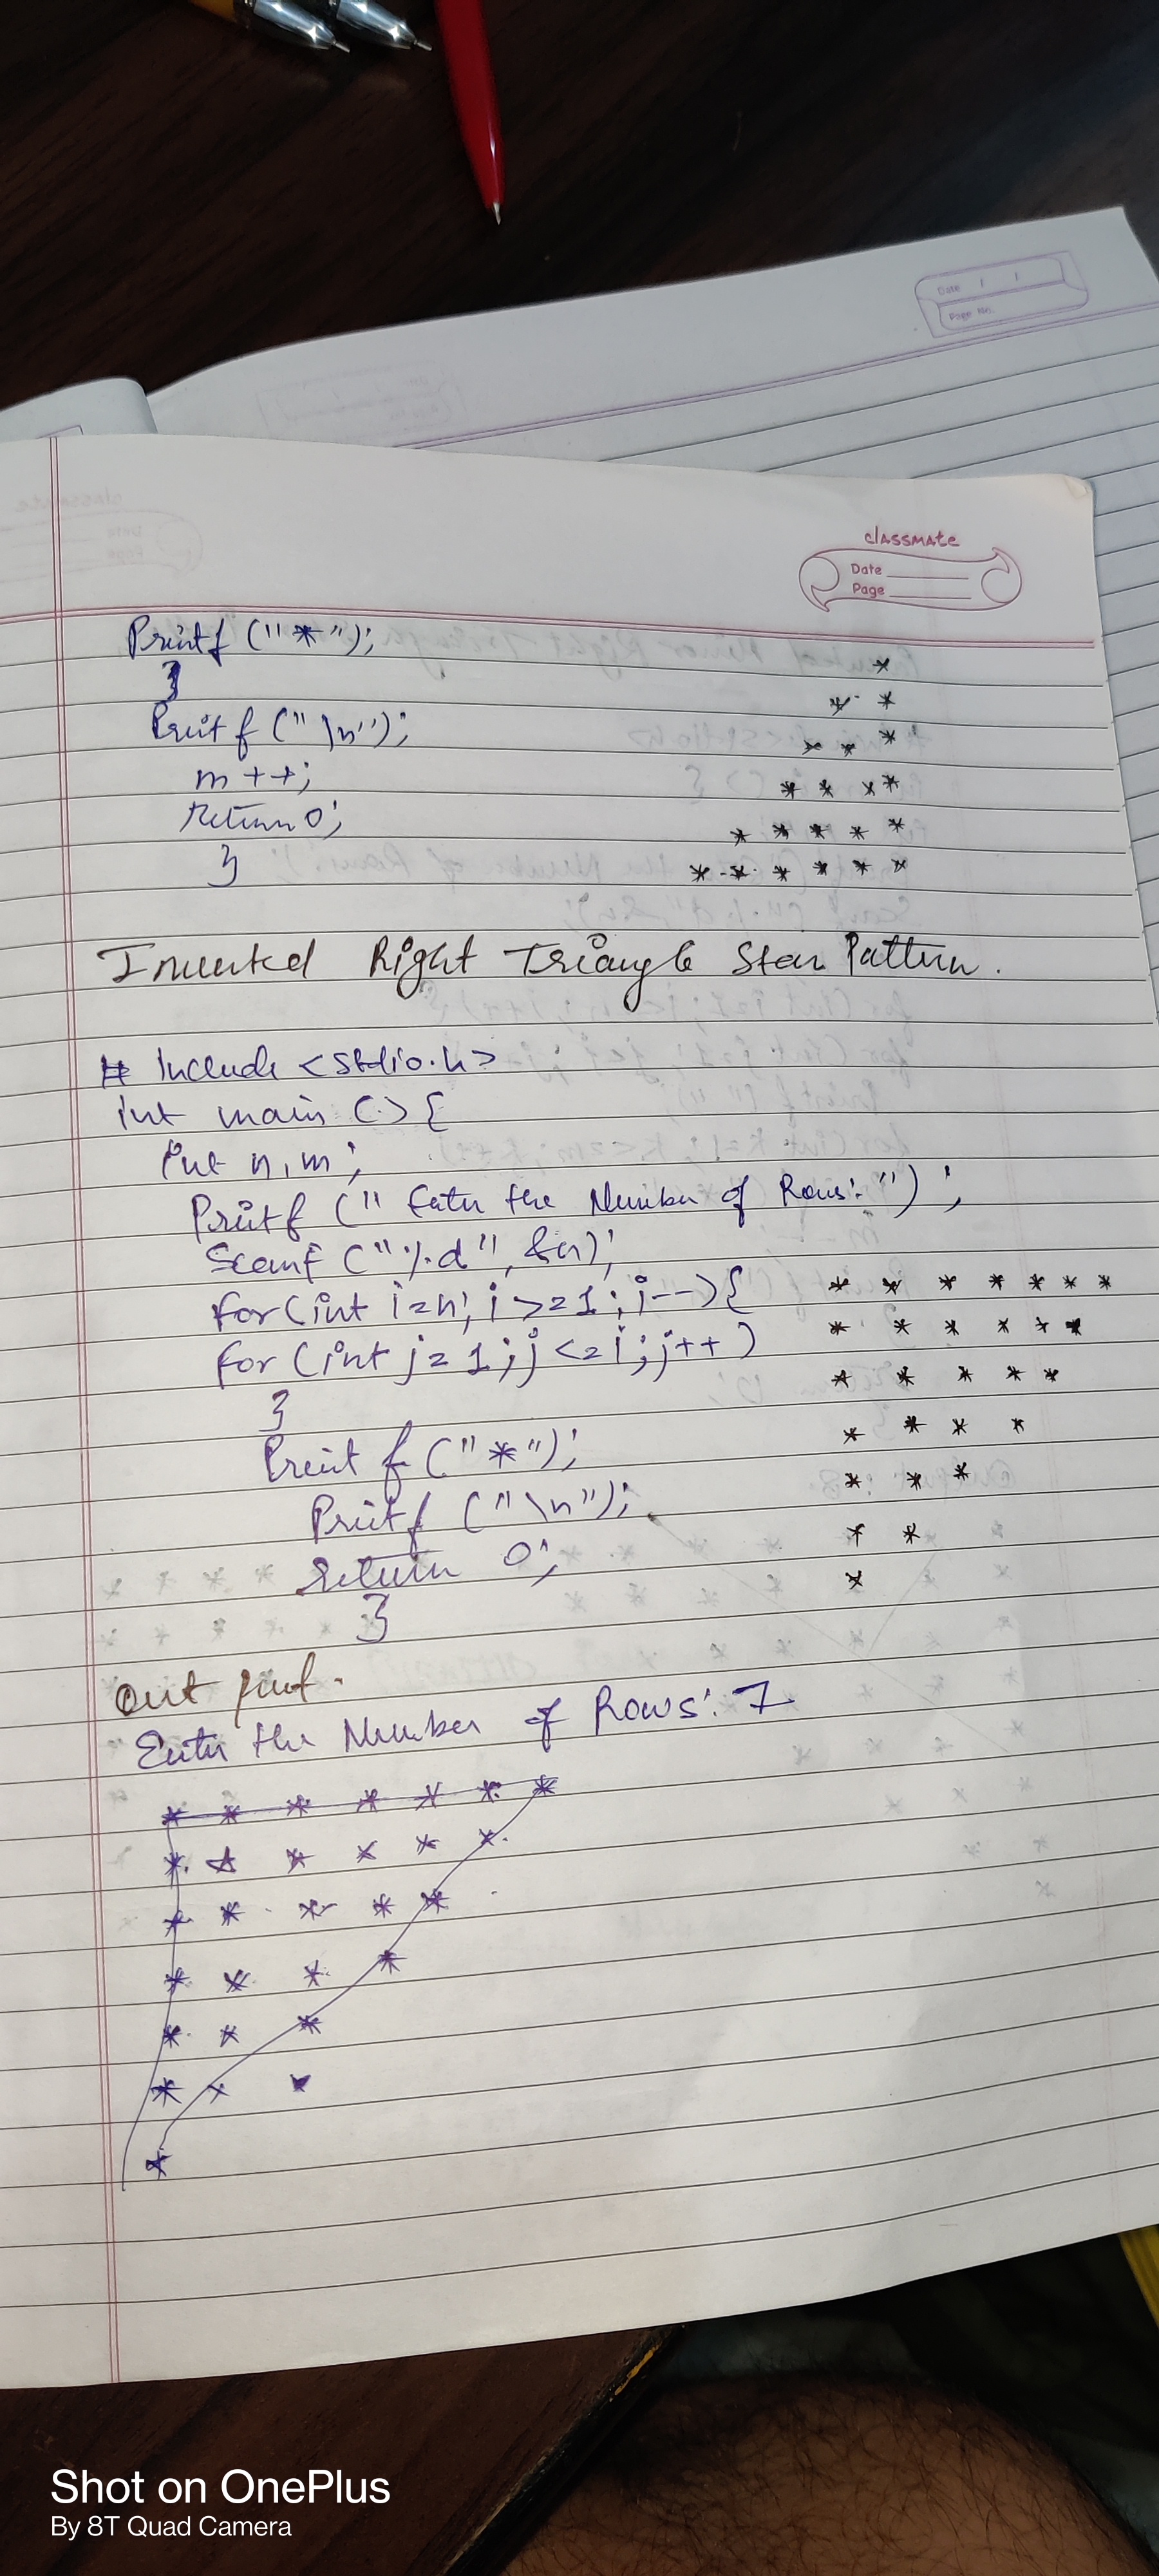 Date / /
Page No.
classmate
Date
Page
Printf ("*");
}
Printf ("\n");
m++;
return 0;
}
*
* *
* * *
* * * *
* * * * *
* * * * * *
Inverted Right Triangle Star Pattern.
# Include <stdio.h>
int main () {
int n, m;
Printf ("Enter the Number of Rows:");
Scanf ("%d", &n);
for (int i=n; i>=1; i--) {
for (int j=1; j<=i; j++)
}
Printf ("*");
Printf ("\n");
return 0;
}
* * * * * * *
* * * * * *
* * * * *
* * * *
* * *
* *
*
Out put.
Enter the Number of Rows: 7
* * * * * * *
* * * * * *
* * * * *
* * * *
* * *
* *
*
Shot on OnePlus
By 8T Quad Camera